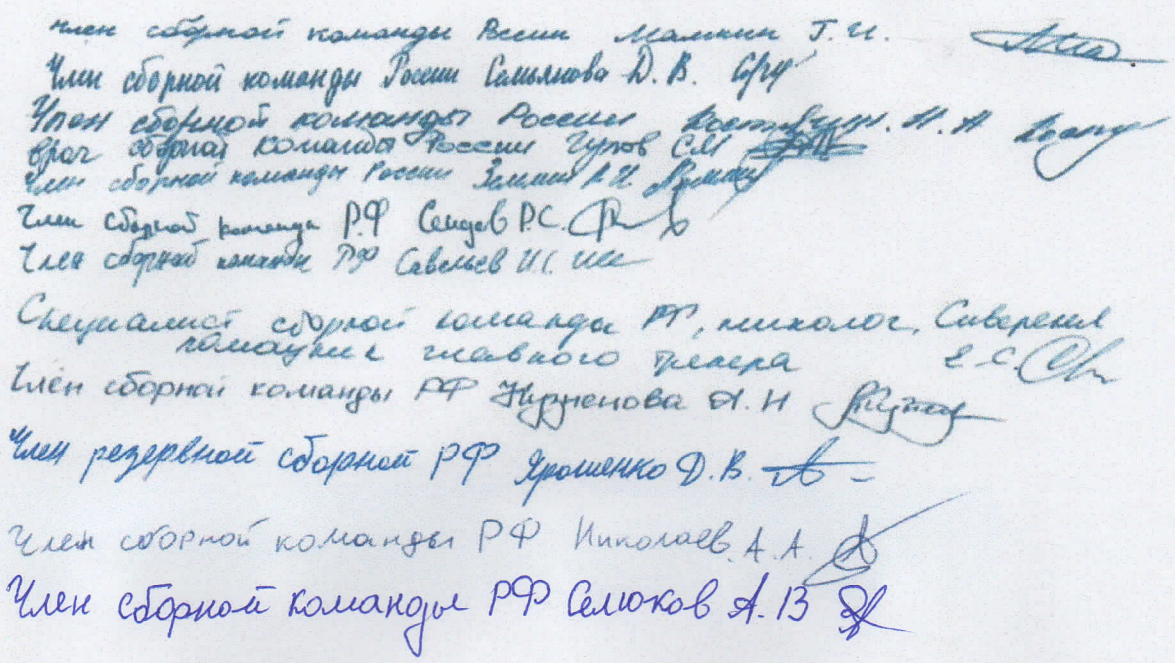 член сборной команды России Мамкин Г.И.
Член сборной команды России Семьянова Д. В.
Член сборной команды России Н. А
врач сборной команды России Гулов СМ
Член сборной команды России
Член сборной команды Р.Ф Сеидов Р.С.
Член сборной команды РФ Савельев И.С.
Специалист сборной команды РФ, психолог,
помощник главного тренера Е.С.
Член сборной команды РФ Кузненова А. Н
Член резервной сборной РФ Ярошенко Д. В.
Член сборной команды РФ Николаев А. А.
Член сборной команды РФ Селюков А. В